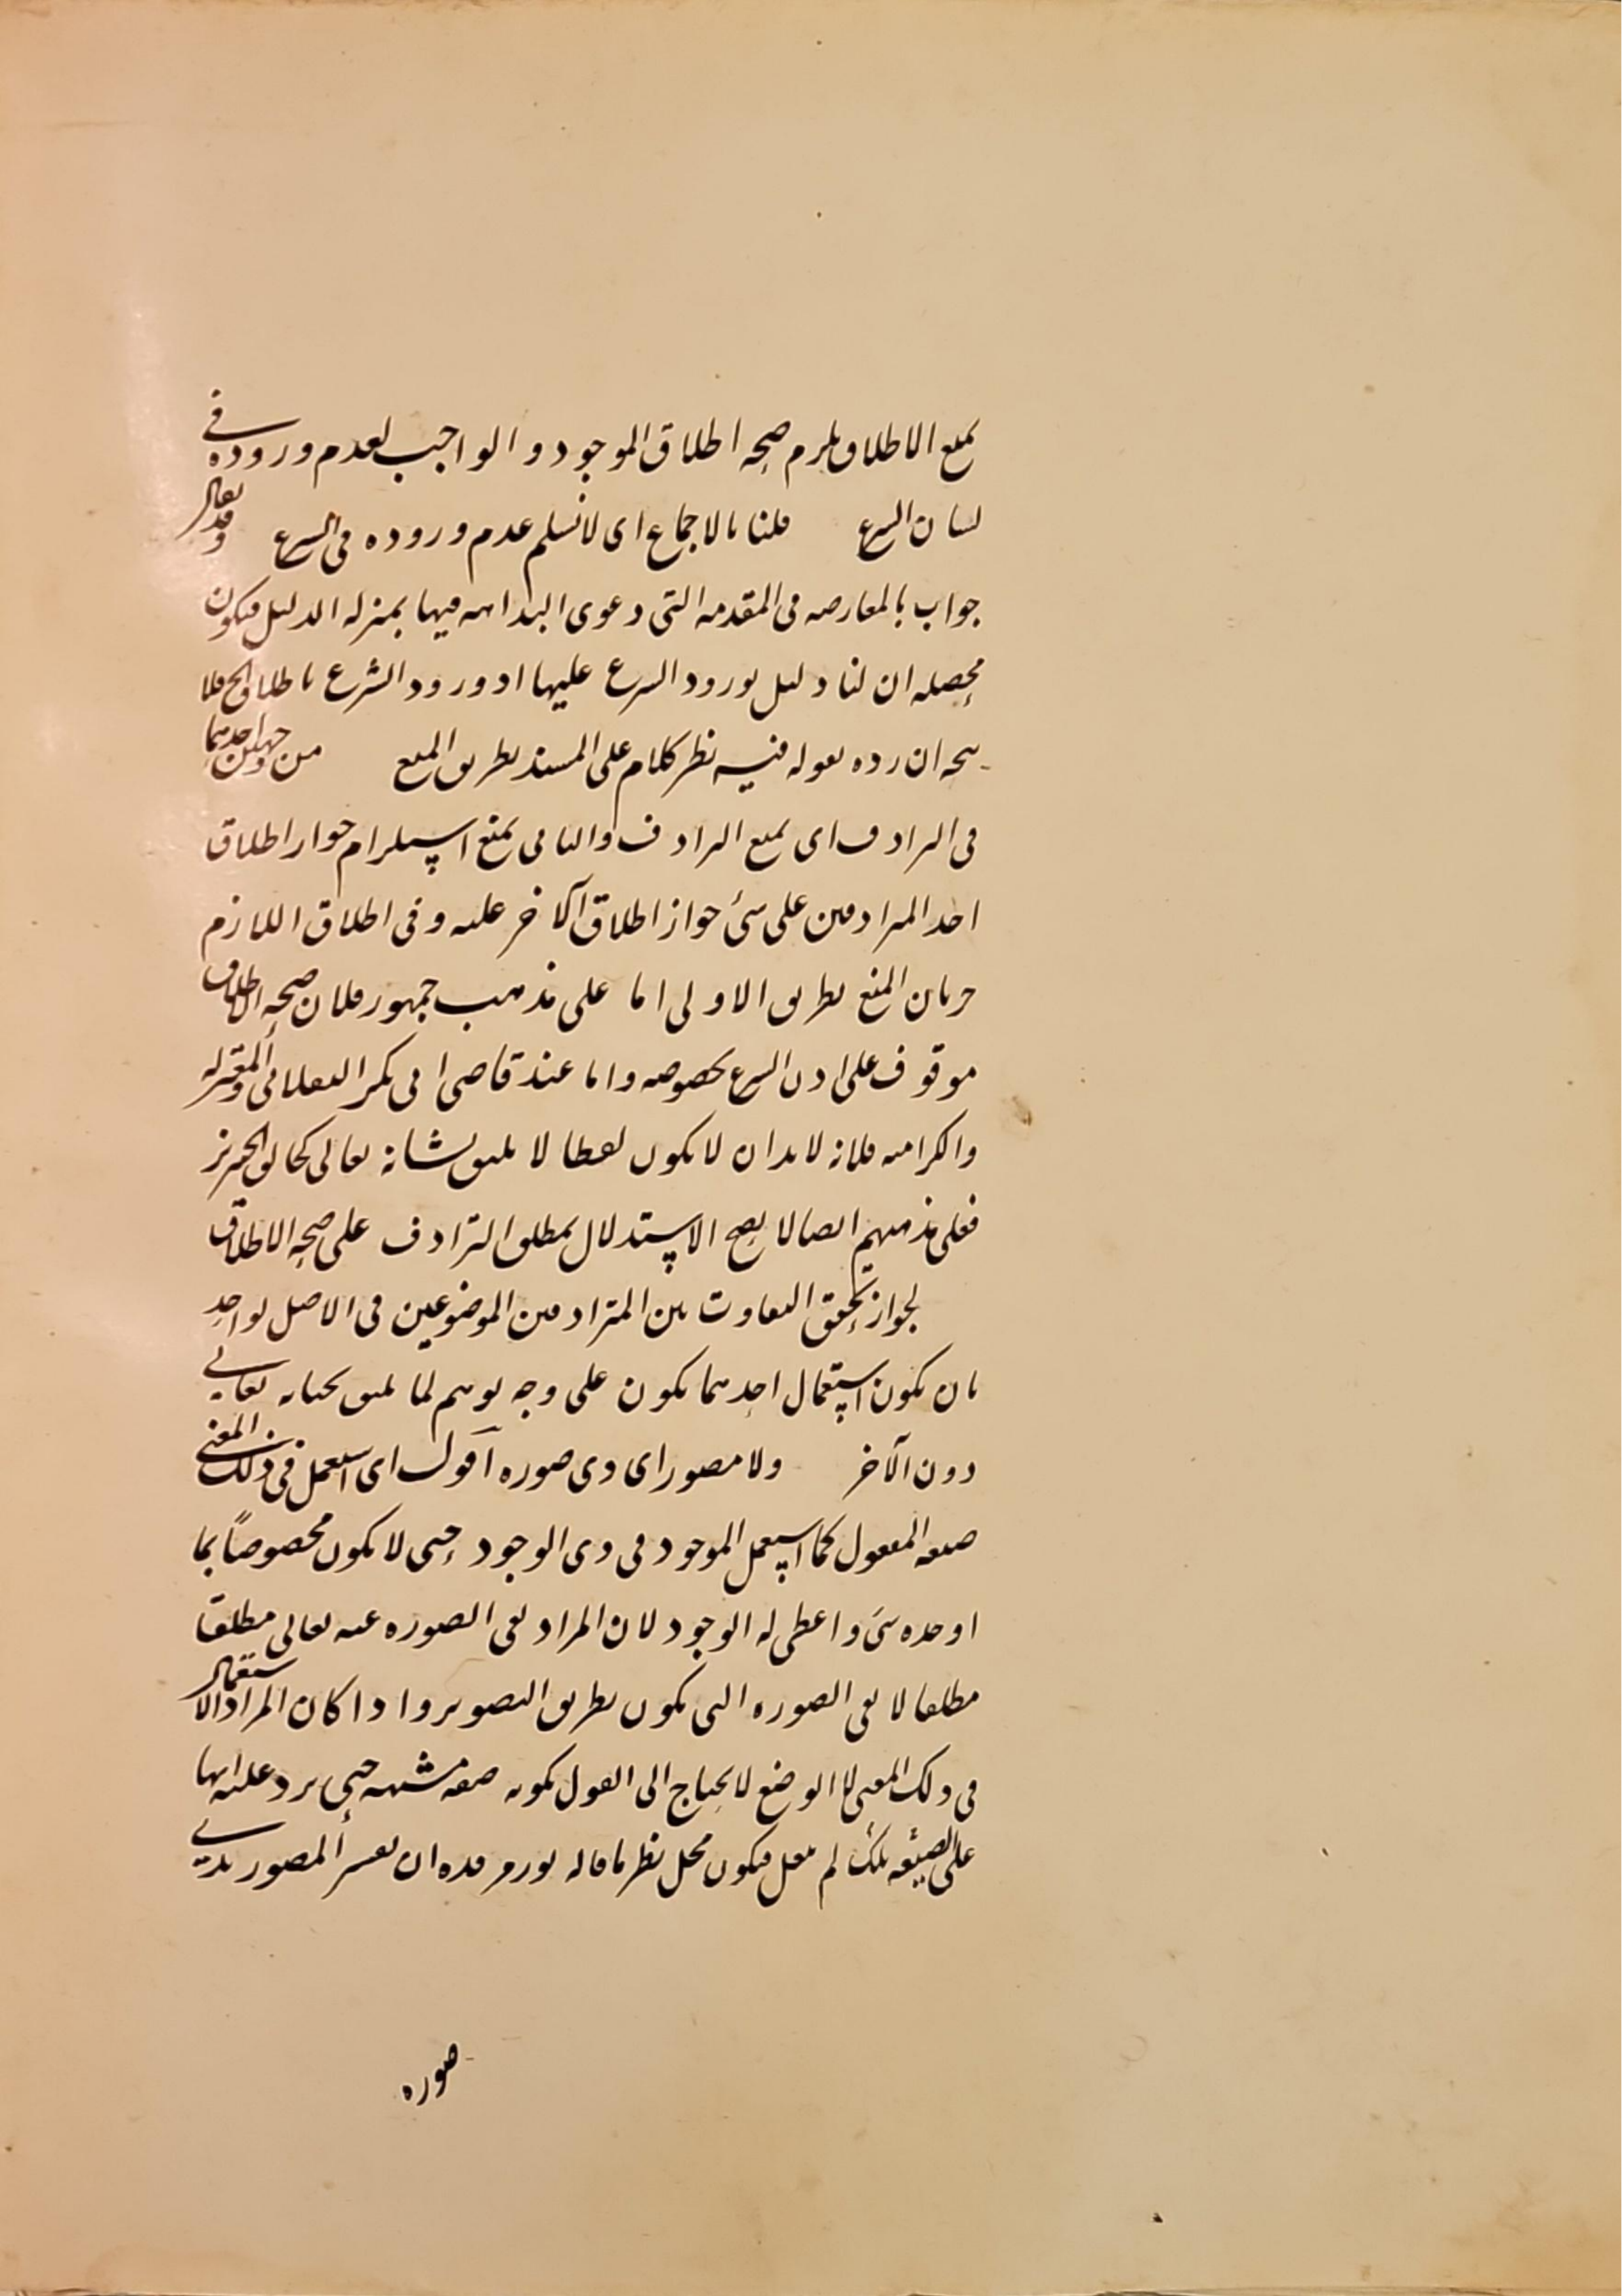 يمنع الاطلاق يلزم صحه اطلاق الموجود و الواجب لعدم وروده في
لسان الشرع قلنا بالاجماع اى لا نسلم عدم وروده فى الشرع وقد يقال
جواب بالمعارضه فى المقدمه التى دعوى البداهه فيها بمنزله الدليل فيكون
محصله ان لنا دليل بورود الشرع عليها اذ ورود الشرع باطلاق الخ فلا
يتجه ان رده بقوله فيه نظر كلام على المسند بطريق المنع من وجهين احدهما
فى الترادف اى يمنع الترادف والثانى يمنع استلزام جواز اطلاق
احد المترادفين على شئ جواز اطلاق الآخر عليه و فى اطلاق اللازم
جريان المنع بطريق الاولى اما على مذهب جمهور فلان صحه الاطلاق
موقوف على اذن الشرع بخصوصه واما عند قاضى ابى بكر الباقلانى والمعتزله
والكراميه فلانه لابد ان لا يكون لفظا لا يليق بشانه تعالى كخالق الخنزير
فعلى مذهبهم ايضا لا يصح الاستدلال بمطلق الترادف على صحه الاطلاق
لجواز تحقق التفاوت بين المترادفين الموضوعين فى الاصل لواحد
بان يكون استعمال احدهما يكون على وجه يوهم لما يليق بجنابه تعالى
دون الآخر ولا مصور اى ذى صوره اقول اى استعمل فى ذلك المعنى
صيغه المفعول كما استعمل الموجود فى ذى الوجود حتى لا يكون مخصوصاً بما
اوجده شئ واعطى له الوجود لان المراد نفى الصوره عنه تعالى مطلقا
مطلقا لا نفى الصوره التى يكون بطريق التصوير واذا كان المراد الاستعمال
فى ذلك المعنى لا الوضع لا يحتاج الى القول بكونه صفه مشبهه حتى يرد عليه انها
على الصيغه تلك لم تنقل فيكون محل نظر ما قاله فده ان تفسير المصور بذى
صوره